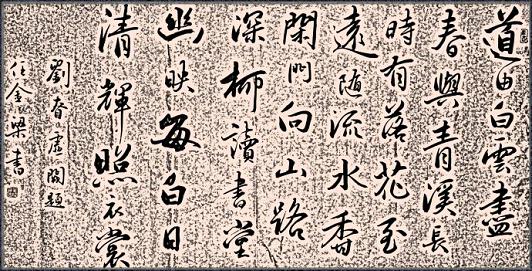 道由白雲盡
春與青溪長
時有落花至
遠随流水香
閑門向山路
深柳讀書堂
幽映每白日
清輝照衣裳
劉眘虛闕題
任金梁書